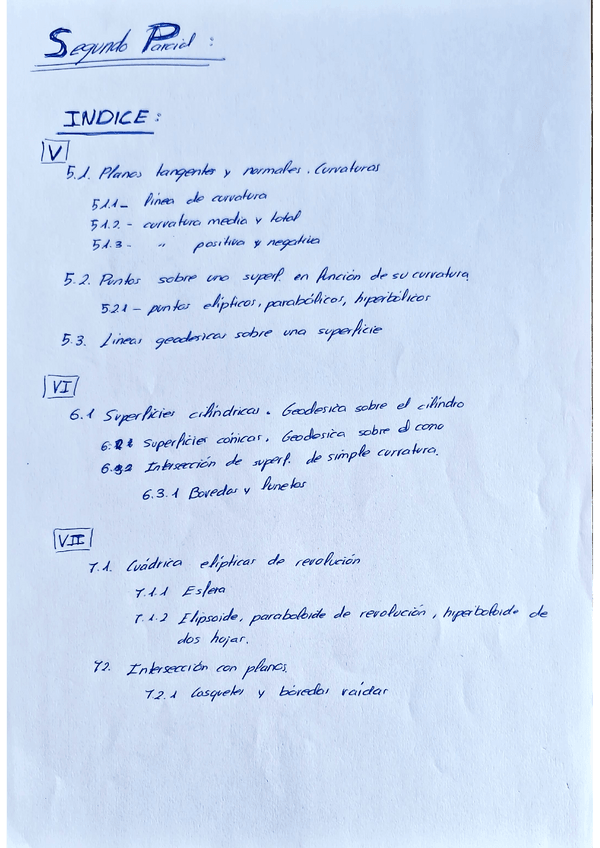 Segundo Parcial :
INDICE :
V
5.1. Planos tangentes y normales. Curvaturas
5.1.1 - línea de curvatura
5.1.2. - curvatura media y total
5.1.3. - " positiva y negativa
5.2. Puntos sobre una superf. en función de su curvatura
5.2.1 - puntos elípticos, parabólicos, hiperbólicos
5.3. Lineas geodesicas sobre una superficie
VI
6.1 Superficies cilíndricas. Geodesica sobre el cilindro
Superficies cónicas. Geodesica sobre el cono
Intersección de superf. de simple curvatura.
6.3.1 Bovedas y lunetos
VII
7.1. Cuádrica elípticas de revolución
7.1.1 Esfera
7.1.2 Elipsoide, paraboloide de revolución, hiperboloide de
dos hojas.
7.2. Intersección con planos.
7.2.1 Casquetes y bóvedas vaídas